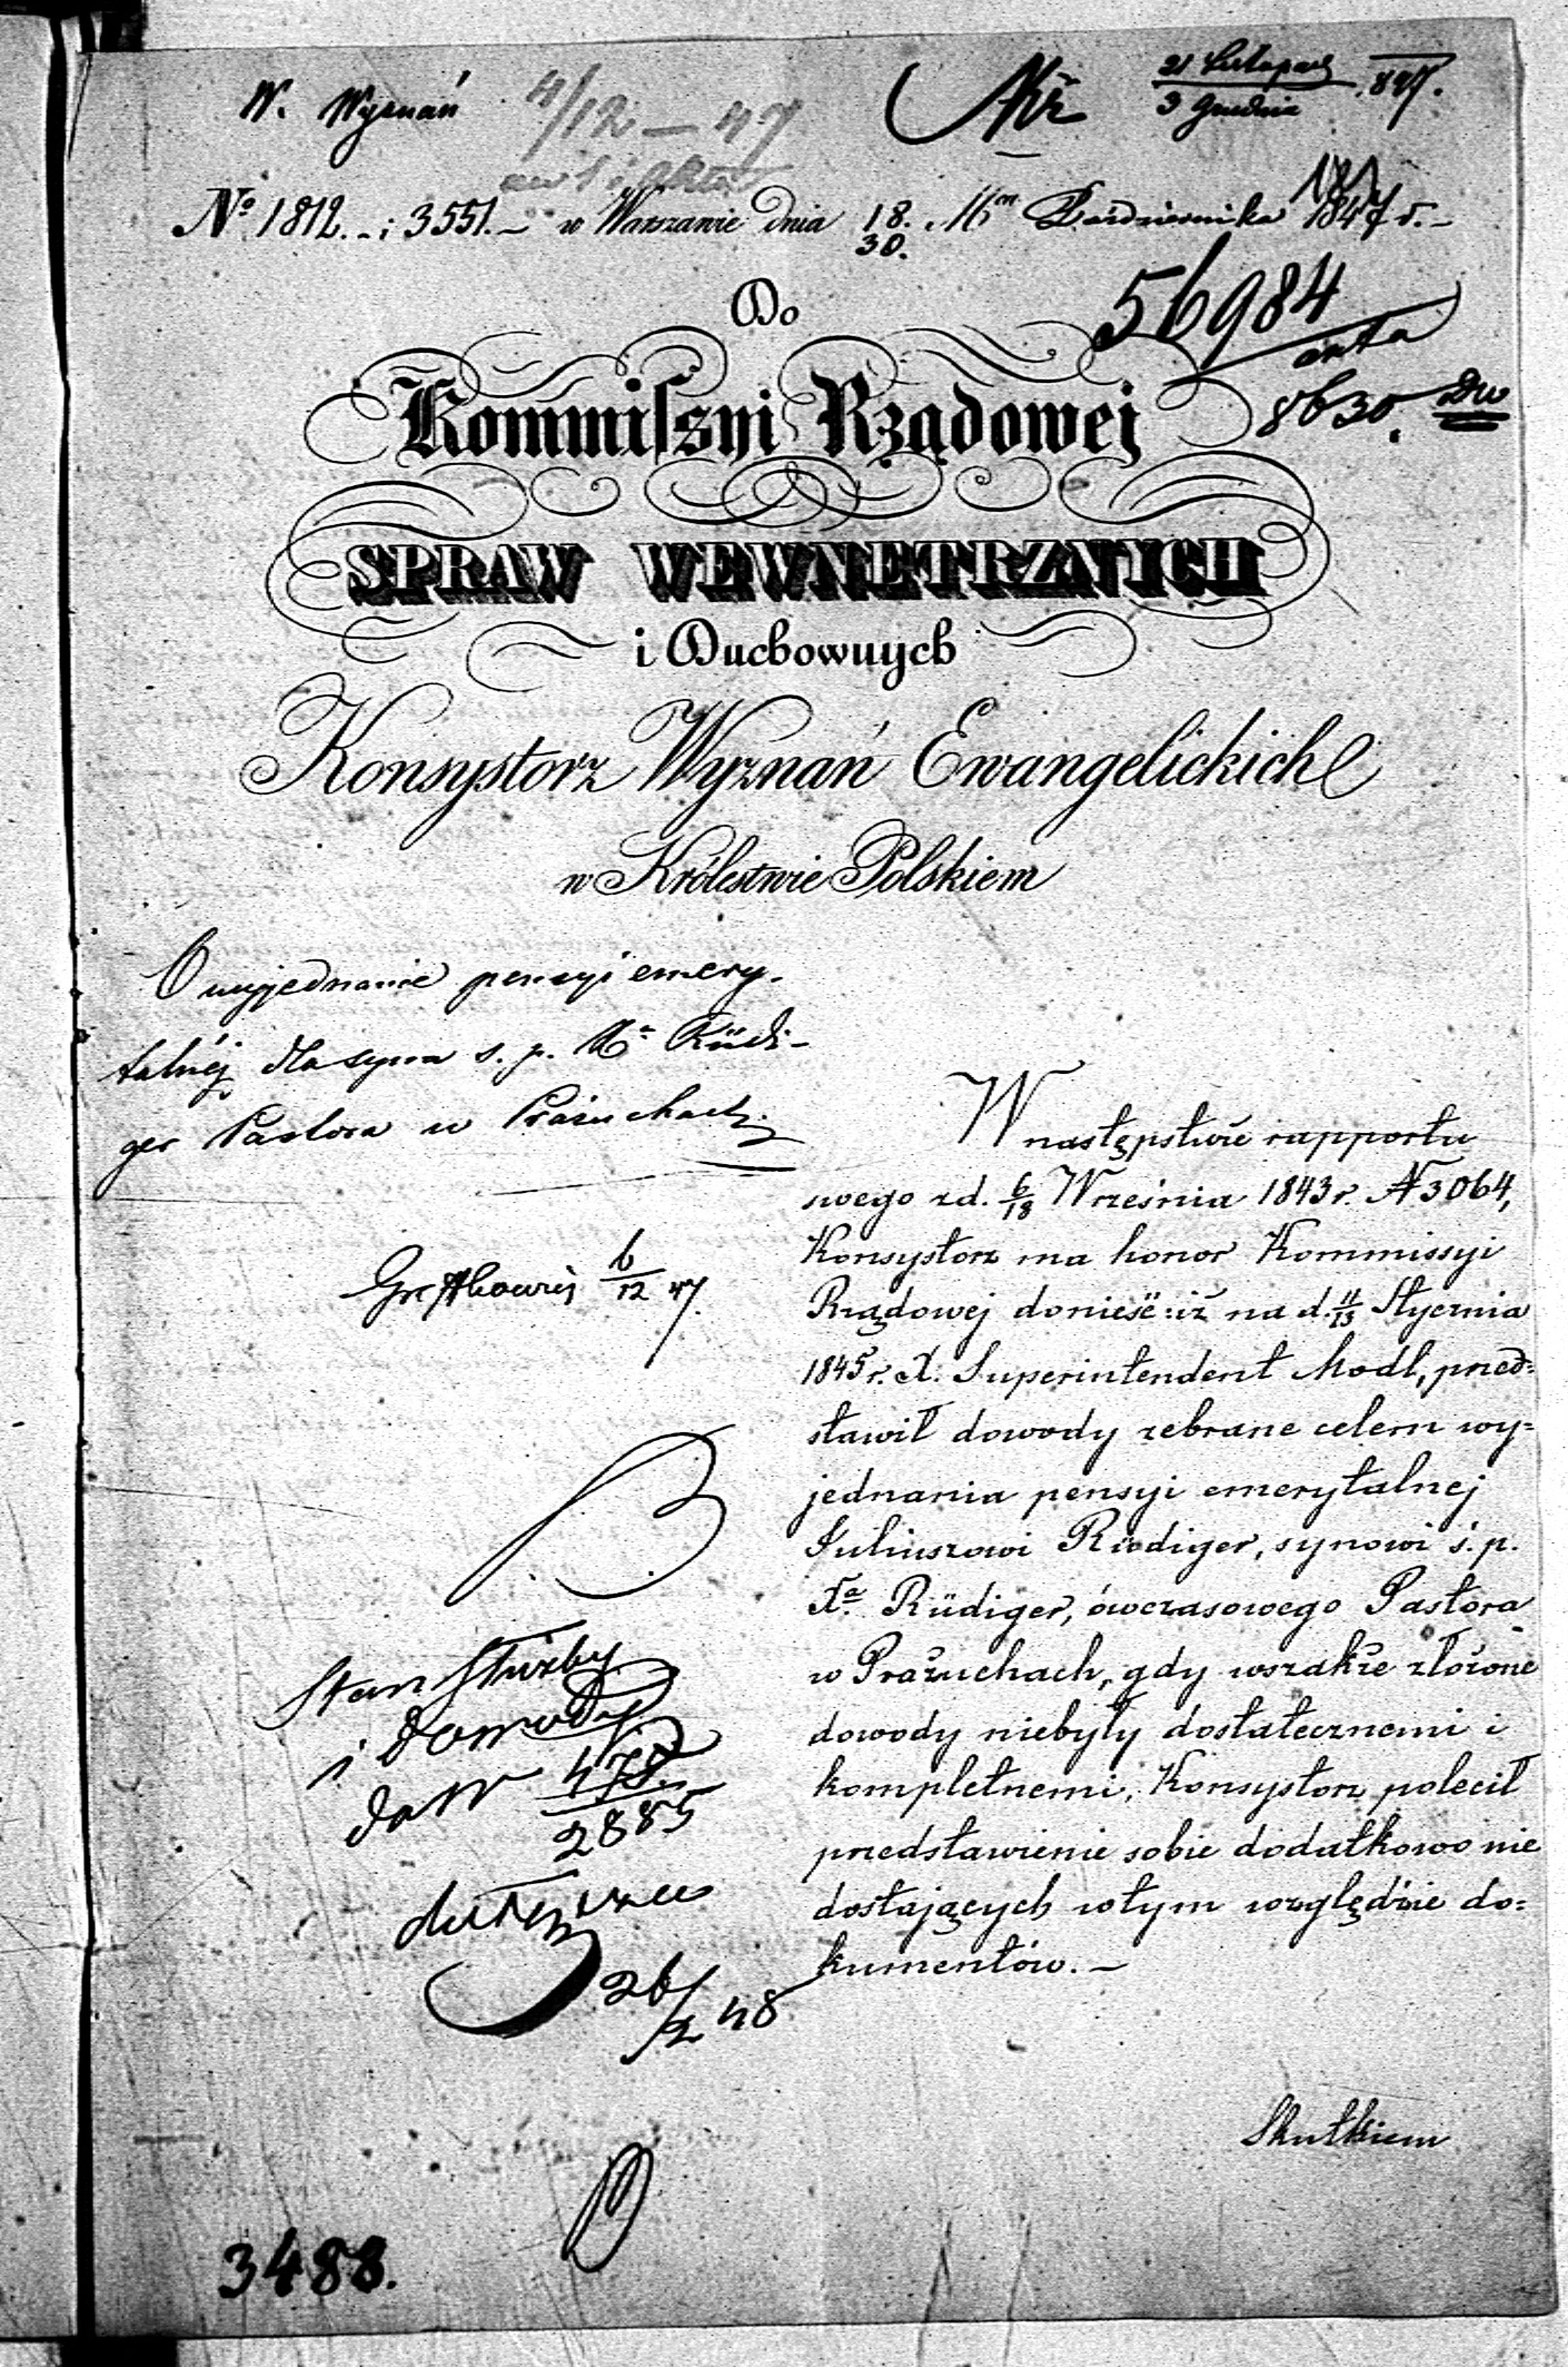 W. Wyznań
4/12 – 47
21 Listopad
3 Grudnia 847.
No 1812. – i 3551. – w Warszawie dnia 18. 30. Października 1847 r. –
56984
8630.
Do
Kommissyi Rządowej
SPRAW WEWNETRZNYCH
i Duchownych
Konsystorz Wyznań Ewangelickich
w Królestwie Polskiem
O wyjednanie pensyi emery-
talnéj dla syna s. p. Xa Rüdi-
ger Pastora w Prażuchach
6/12 47.
Stan służby
i dowody
2885
26/2 48
3488.
W następstwie rapportu
swego z d. 6/18 Września 1843 r. N 3064,
Konsystorz ma honor Kommissyi
Rządowej donieść: iż na d. Stycznia
1845 r. X. Superintendent Modl, przed=
stawił dowody zebrane celem wy=
jednania pensyi emerytalnej
Juliuszowi Rüdiger, synowi ś. p.
Xa. Rüdiger, ówczasowego Pastora
w Prażuchach, gdy wszakże złożone
dowody niebyły dostatecznemi i
kompletnemi, Konsystorz polecił
przedstawienie sobie dodatkowo nie
dostających w tym względzie do=
kumentów. –
Skutkiem